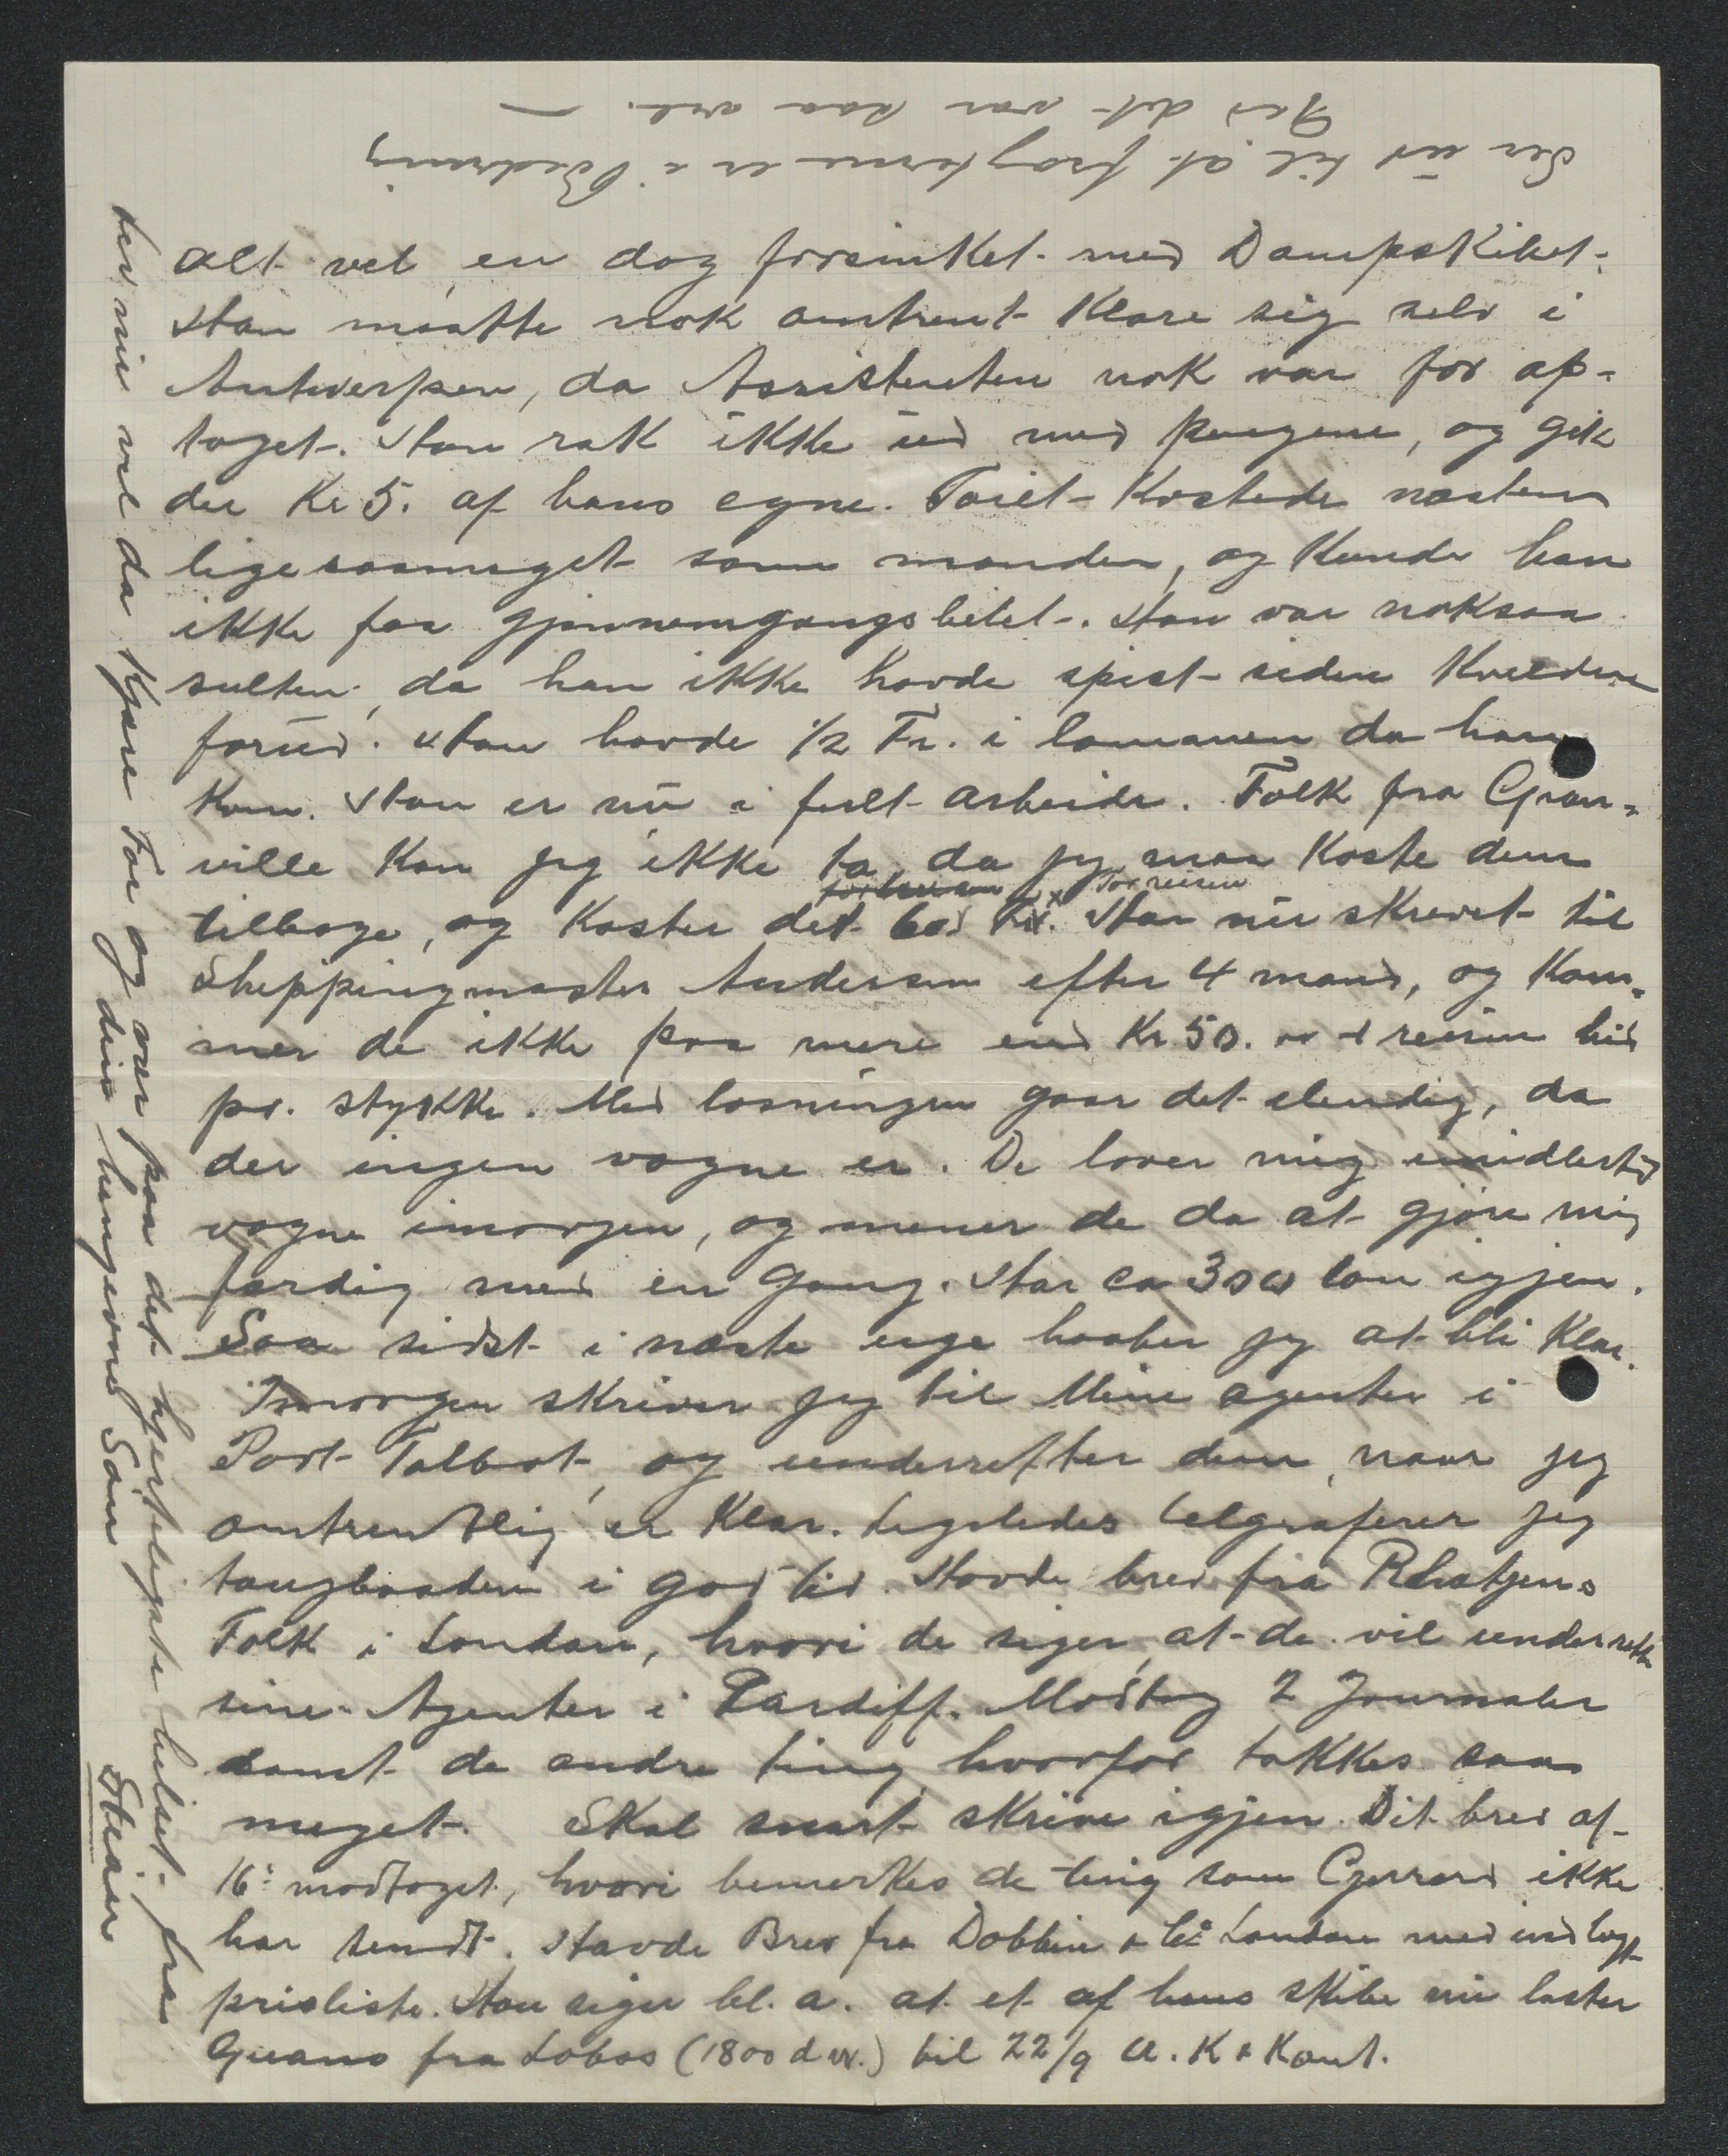 alt vel, en dag forsinket med Dampskibet.
Han maatte nok omtrent klare sig selv i
Antwerpen, da Assistenten nok var for op-
taget. Han rak ikke ud med pengene, og gik
der Kr 5. af hans egne. Tøiet kostede næsten
ligesaameget som manden, og kunde han
ikke faa gjennemgangsbilet. Han var noksaa
sulten, da han ikke havde spist siden Kvelden
forud. Han havde 1/2 Fr. i lommen da han
kom. Han er nu i fuldt arbeide. Folk fra Gran-
ville kan jeg ikke ta, da jeg maa koste dem
tilbage, og koster det 60 Kr. for reisen Har nu skrevet til
Shippingmaster Andersen efter 4 mand, og kom-
mer de ikke paa mere end Kr 50. reisen hid
pr. stykke. Med losningen gaar det elendig, da
der ingen vogne er. De lover mig imidlertid
vogne imorgen, og mener de da at gjøre mig
færdig med en gang. Har ca 300 ton igjen.
Saa sidst i næste uge haaber jeg at bli klar.
Imorgen skriver jeg til Mine agenter i
Port Talbot, og underretter dem, naar jeg
omtrentlig er klar. Ligeledes telegraferer jeg
taugbaaden i god tid. Havde brev fra Rahtjens
Folk i London, hvori de siger, at de vil underrette
sine Agenter i Cardiff. Modtog 2 Journaler
samt de andre ting, hvorfor takkes saa
meget. Skal snart skrive igjen. Dit brev af
16: modtaget, hvori bemerkes de ting som Gerrard ikke
har sendt. Havde Brev fra Dobbin & Co London med indlagt
prisliste. Han siger bl. a. at et af hans skibe nu laster
Guano fra Lobos (1800 dw.) til 22/9 U. K & Kont.
Ser ud til at fragterne er i Bedring
Gid det var saa vel. —
Lev nu vel da kjære Far og vær paa det hjerteligste hilset fra
din hengivne Søn